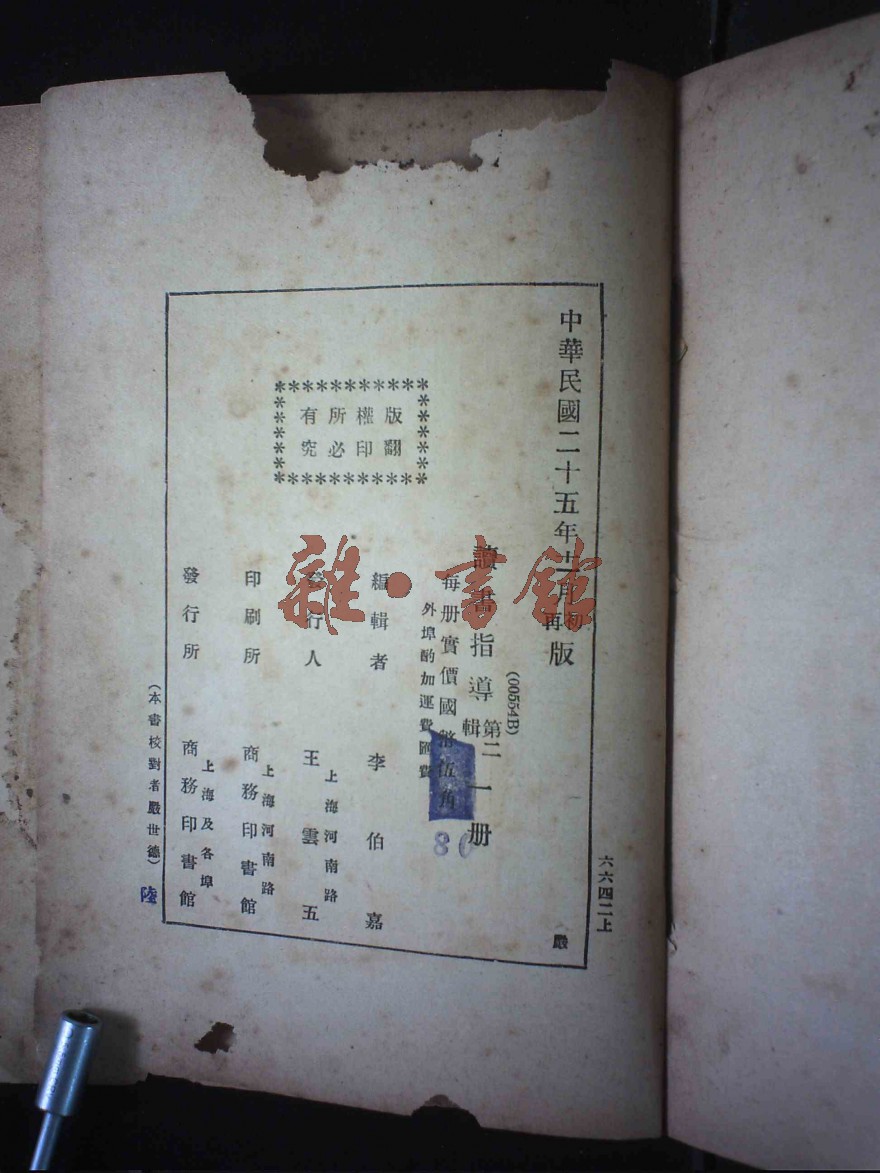 六六四二上
中華民國二十五年十一月初再版
嚴
(00554B)
讀書指導第二輯一册
每册實價國幣伍角
80
外埠酌加運費匯費
版權所有
翻印必究
編輯者 李伯嘉
上海河南路
發行人 王雲五
上海河南路
印刷所 商務印書館
上海及各埠
發行所 商務印書館
(本書校對者嚴世德)
陸
雜·書館